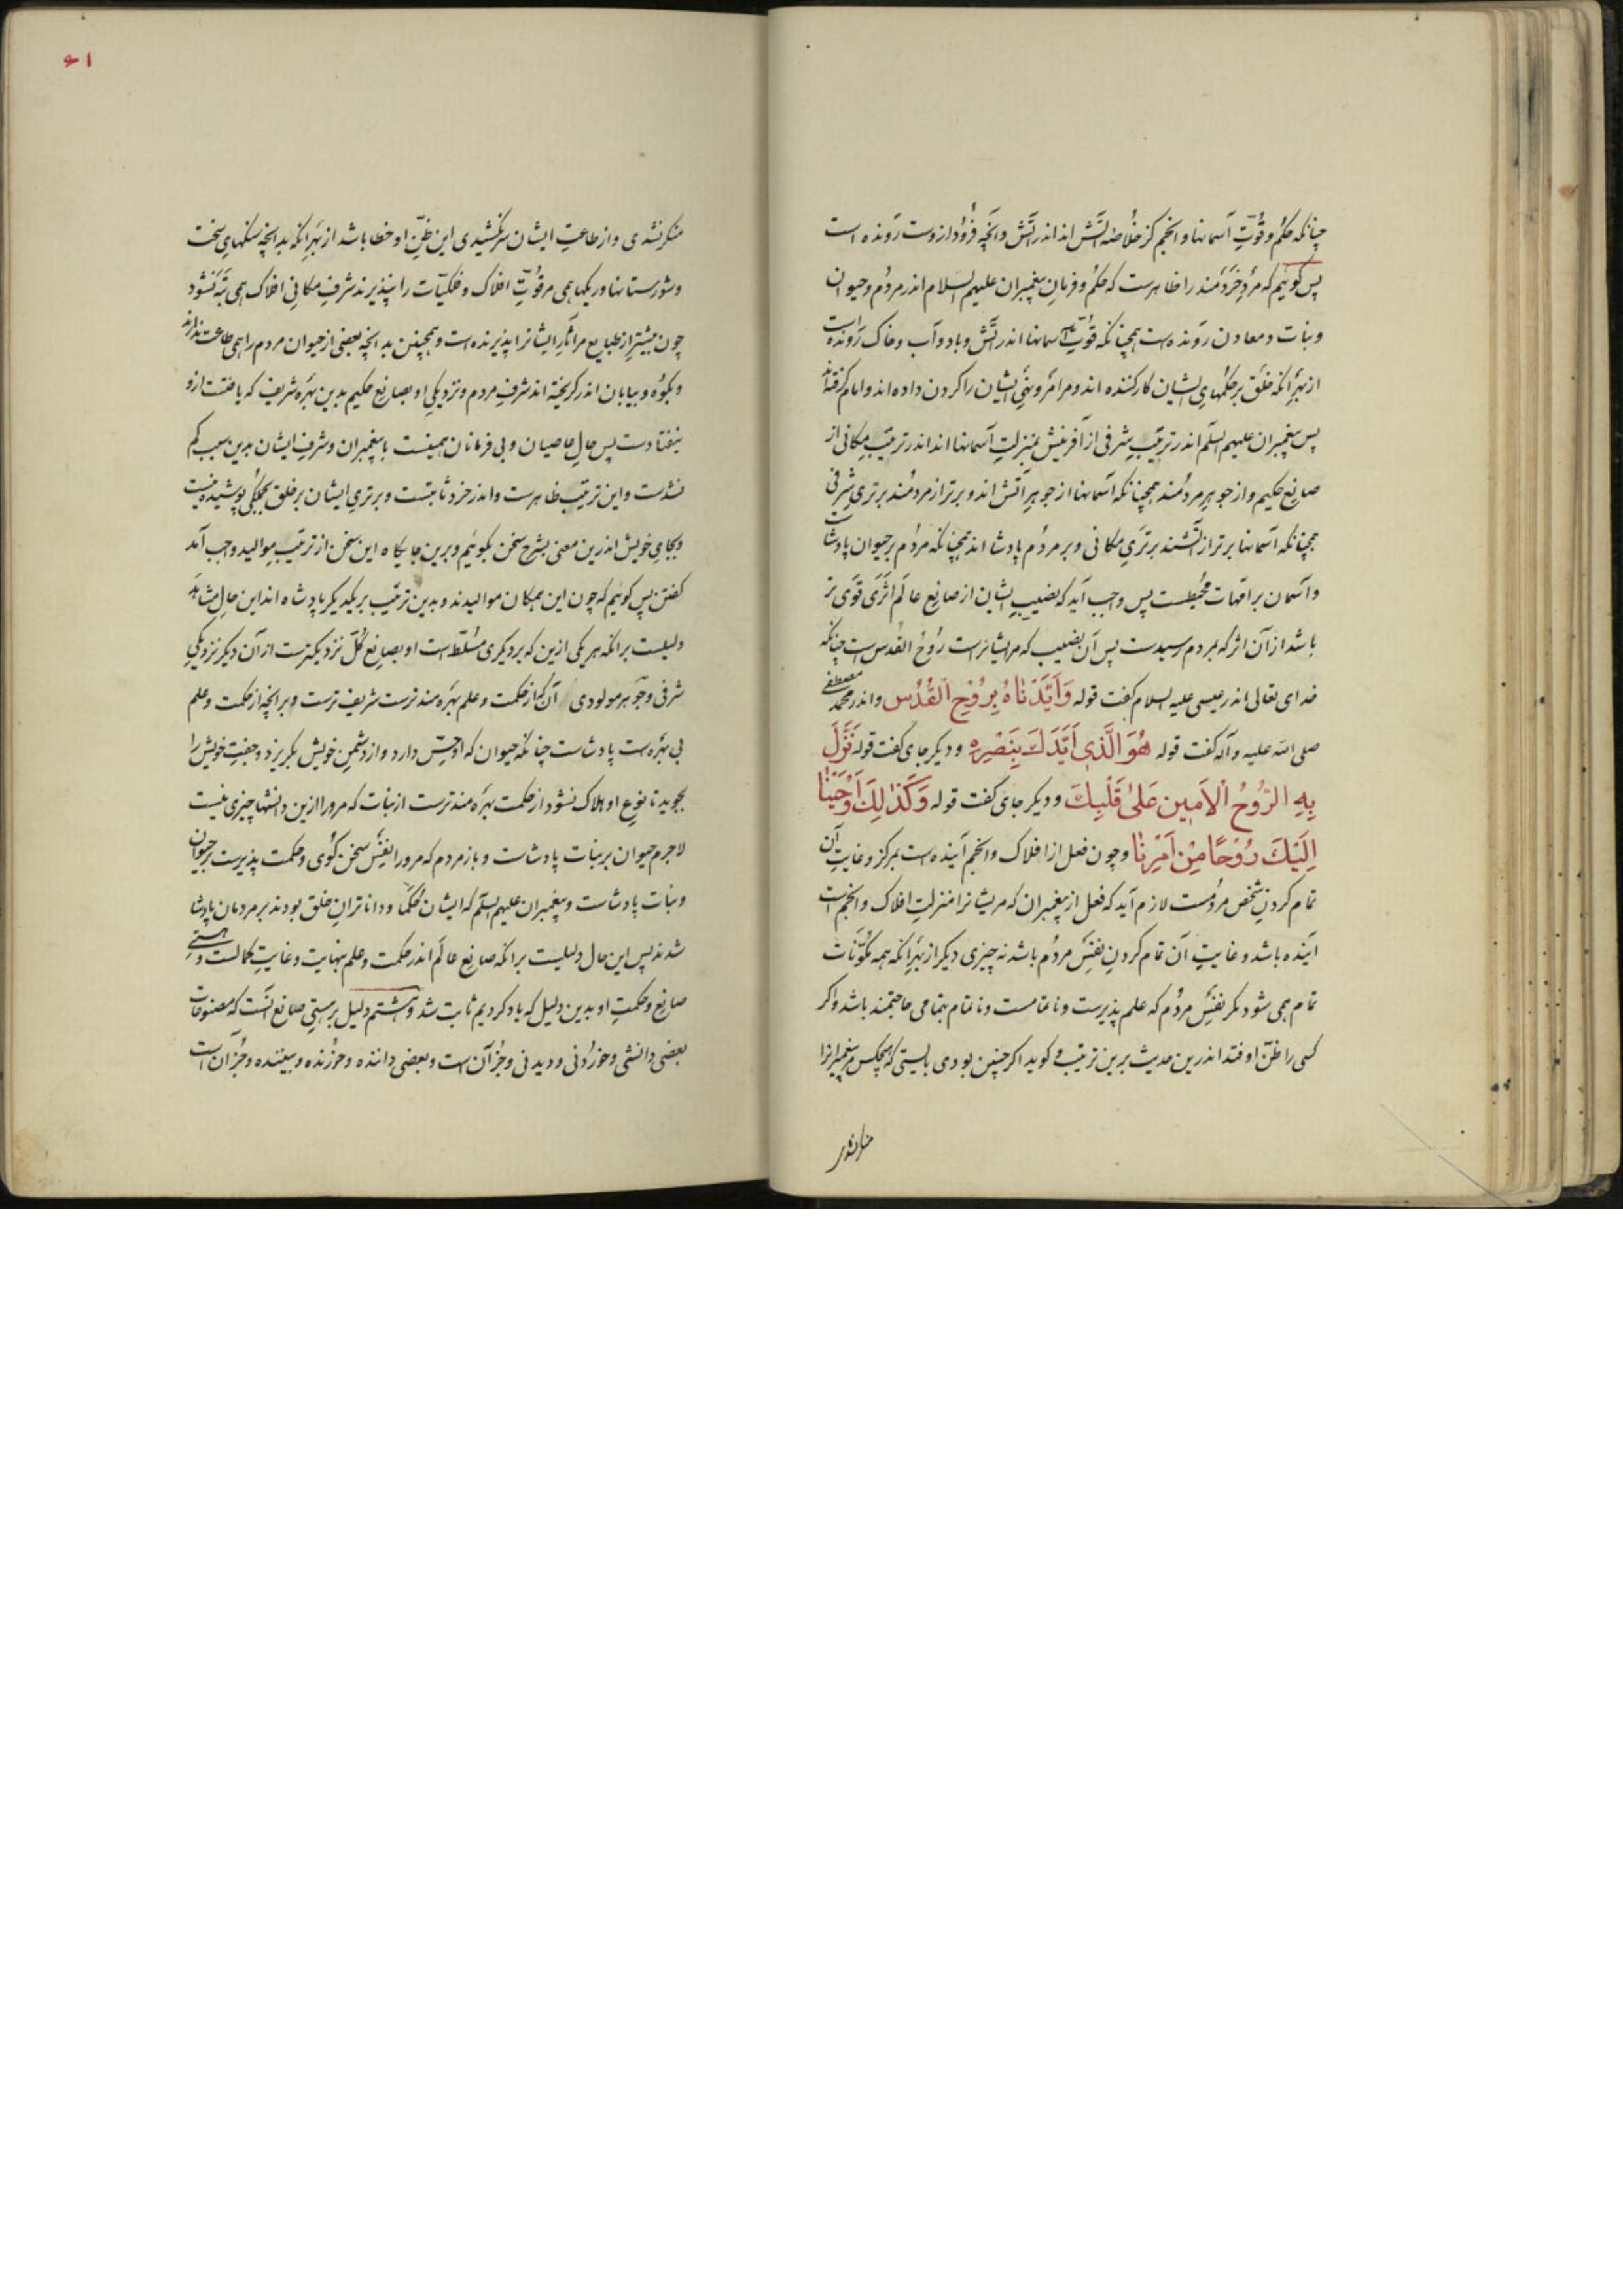 چنانکه حکم و قوّتِ آسمانها و انجم کز خلاصه آتش اند اندر آتش و آنچه فرود ازوست رونده است
پس گوئیم که مردِ خردمند را ظاهرست که حکم و فرمانِ پیغمبران علیهم السلام اندر مردم و حیوان
و نبات و معادن رونده است همچنانکه قوّتِ آسمانها اندر آتش و باد و آب و خاک رونده است
از بهرِ آنکه خلق بر حکمهای ایشان کار کننده اند و مر امر و نهیِ ایشان را گردن داده اند و امام گرفته اند
پس پیغمبران علیهم السلم اندر ترتیبِ شرفی از آفرینش بمنزلتِ آسمانها اند اندر ترتیبِ مکانی از
صانعِ حکیم و از جوهرِ مردمند همچنانکه آسمانها از جوهرِ آتش اند و برتر از مردمند برتریِ شرفی
همچنانکه آسمانها برتر از آتشند برتریِ مکانی و بر مردم پادشا اند همچنانکه مردم بر حیوان پادشاست
و آسمان بر امّهات محیطست پس واجب آید که نصیبِ ایشان از صانعِ عالَم اثری قوی تر
باشد از آن اثر که بمردم رسیدست پس آن نصیب که مر ایشانراست روح القدس است چنانکه
خدای تعالی اندر عیسی علیه السلام گفت قوله وَاَیَّدْنَاهُ بِرُوْحِ الْقُدُس و اندر محمد مصطفی
صلی الله علیه و آله گفت قوله هُوَ الَّذِی اَیَّدَكَ بِنَصْرِهِ و دیگر جای گفت قوله نَزَّلَ
بِهِ الرُّوْحُ الْاَمِین عَلیٰ قَلْبِكَ و دیگر جای گفت قوله وَكَذٰلِكَ اَوْحَیْنَا
اِلَیْكَ رُوْحًا مِنْ اَمْرِنَا و چون فعل از افلاک و انجم آینده است بمرکز و غایتِ آن
تمام کردنِ شخصِ مردمست لازم آید که فعل از پیغمبران که مر ایشانرا منزلتِ افلاک و انجم است
آینده باشد و غایتِ آن تمام کردنِ نفسِ مردم باشد نه چیزی دیگر از بهرِ آنکه همه مکوّنات
تمام همی شود مگر نفسِ مردم که علم پذیرست و ناتمامست و ناتمام بتمامی حاجتمند باشد و اگر
کسی را ظنّ اوفتد اندرین حدیث برین ترتیب و گوید اگر چنین بودی بایستی که هیچکس مر پیغمبرانرا
منکر نشدی
۶۱
منکر نشدی و از طاعتِ ایشان سر نکشیدی این ظنّ او خطا باشد از بهرِ آنکه بدانچه سنگهای سخت
و شورستانها و ریگها همی مر قوّتِ افلاک و فلکیّات را نپذیرند شرفِ مکانیِ افلاک همی تبه نشود
چون بیشتر از طبایع مر آثارِ ایشانرا پذیرنده است و همچنین بدانچه بعضی از حیوان مردم را همی طاعت ندارند
و بکوه و بیابان اندر گریخته اند شرفِ مردم و نزدیکیِ او بصانعِ حکیم بدین بهره شریف که یافتست ازو
نیفتادست پس حالِ عاصیان و بی فرمانان همینست با پیغمبران و شرفِ ایشان بدین سبب کم
نشدست و این ترتیب ظاهرست و اندر خرد ثابتست و برتریِ ایشان بر خلق بجملگی پوشیده نیست
و بجایِ خویش اندرین معنی بشرح سخن بگوئیم و برین جایگاه این سخن از ترتیبِ موالید واجب آمد
گفتن پس گوئیم که چون این همگان موالیدند و بدین ترتیب بر یکدیگر پادشاه اند این حالِ مشاهَد
دلیلست بر آنکه هر یکی ازین که بر دیگری مسلّط است او بصانعِ کلّ نزدیکترست از آن دیگر نزدیکیِ
شرفی و جوهر مولودی آن که از حکمت و علم بهره مندترست شریف ترست و بر آنچه از حکمت و علم
بی بهره است پادشاست چنانکه حیوان که او حسّ دارد و از دشمنِ خویش بگریزد و جفتِ خویش را
بجوید تا نوعِ او هلاک نشود از حکمت بهره مندترست از نبات که مرو را ازین دانشها چیزی نیست
لاجرم حیوان بر نبات پادشاست و باز مردم که مرو را نفسِ سخن گوی و حکمت پذیرست بر حیوان
و نبات پادشاست و پیغمبران علیهم السلم که ایشان حکما و داناترانِ خلق بودند بر مردمان پادشا
شدند پس این حال دلیلست بر آنکه صانعِ عالَم اندر حکمت و علم بنهایت و غایتِ کمالست و هستیِ
صانع و حکمتِ او بدین دلیل که یاد کردیم ثابت شد و هشتم دلیل بر هستیِ صانع آنست که مصنوعات
بعضی دانشی و خوردنی و دیدنی و جز آن است و بعضی داننده و خورنده و بیننده و جز آن است